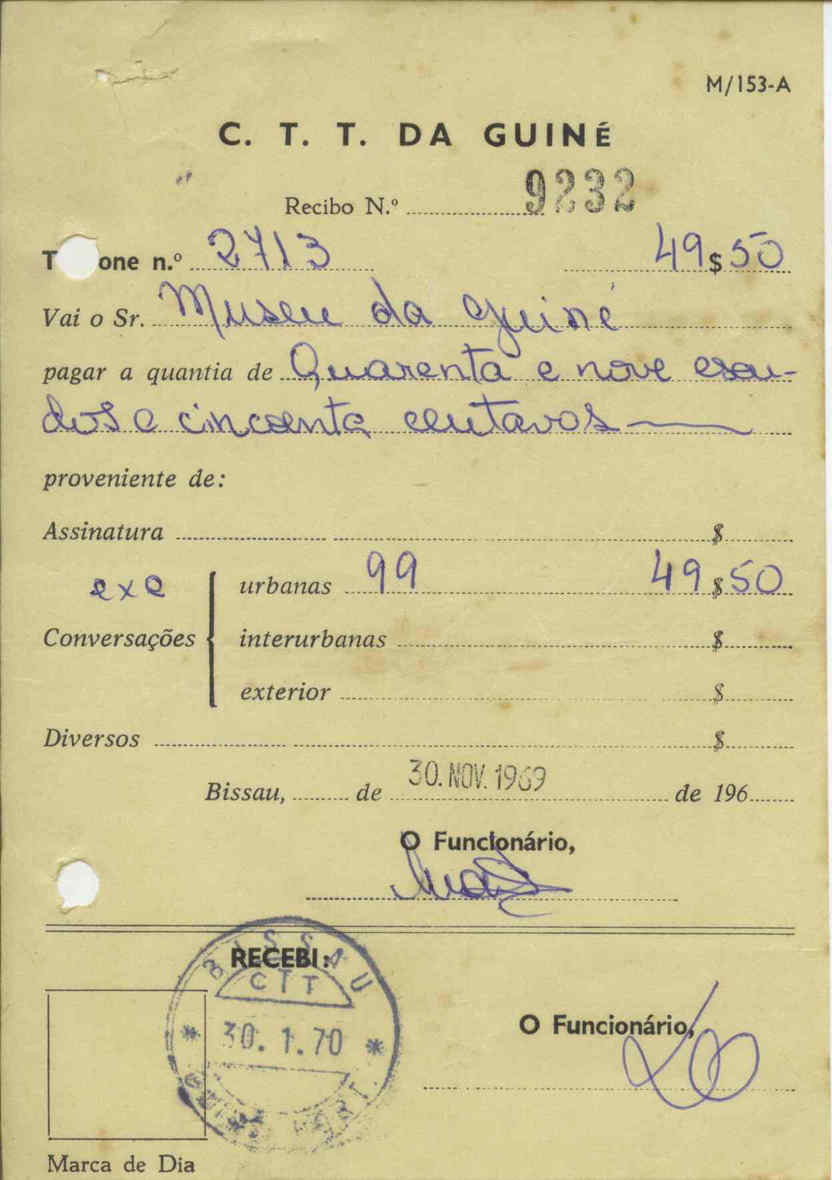 M/153-A
C. T. T. DA GUINÉ
Recibo N.º 9232
T one n.º 2713 49$50
Vai o Sr. Museu da Guiné
pagar a quantia de Quarenta e nove escu-
dos e cincoenta centavos
proveniente de:
Assinatura $
exe urbanas 99 49$50
Conversações interurbanas $
exterior $
Diversos $
Bissau, de 30. NOV. 1969 de 196
O Funcionário,
RECEBI:
BISSAU
CTT
* 30. 1. 70 *
O Funcionário,
Marca de Dia